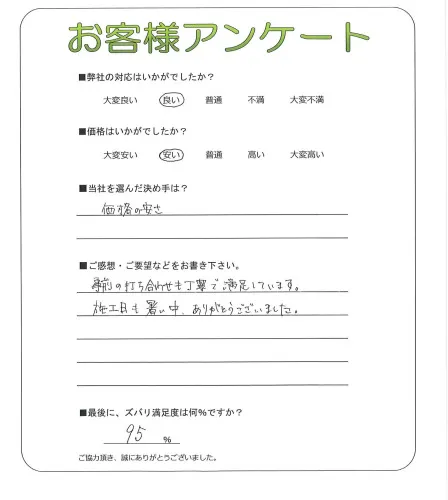 お客様アンケート
■弊社の対応はいかがでしたか？
大変良い 良い 普通 不満 大変不満
■価格はいかがでしたか？
大変安い 安い 普通 高い 大変高い
■当社を選んだ決め手は？
価格の安さ
■ご感想・ご要望などをお書き下さい。
事前の打ち合わせも丁寧で満足しています。
施工日も暑い中、ありがとうございました。
■最後に、ズバリ満足度は何%ですか？
95 %
ご協力頂き、誠にありがとうございました。